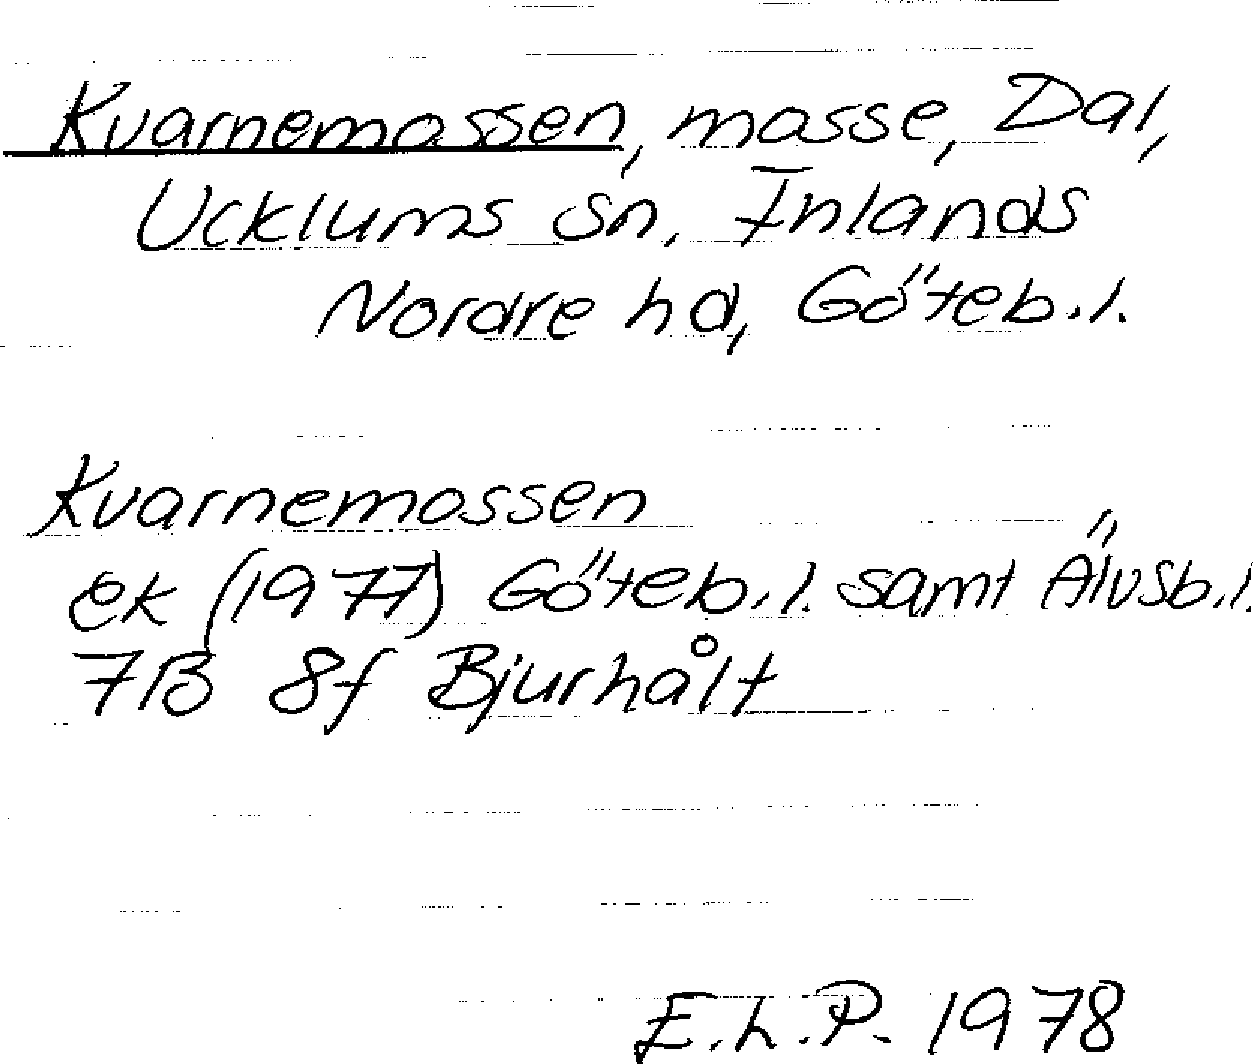 Kvarnemossen, mosse, Dal,
Ucklums sn, Inlands
Nordre hd, Göteb.l.
Kvarnemossen
ek (1977) Göteb.l. samt Älvsb.l.
7B 8f Bjurhålt
E.L.P. 1978